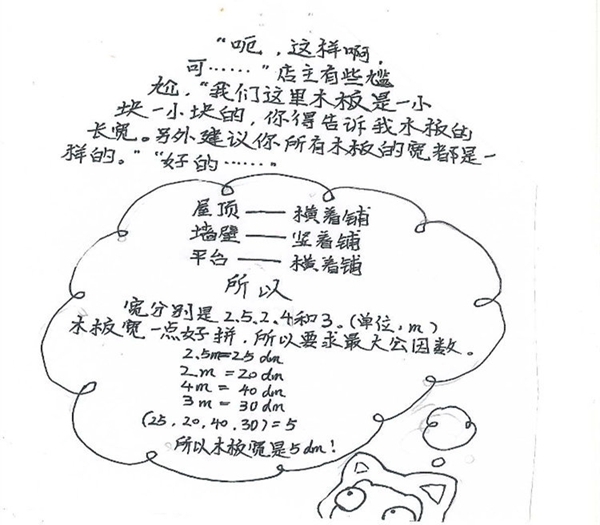 “呃，这样啊，
可……”店主有些尴
尬，“我们这里木板是一小
块一小块的，你得告诉我木板的
长宽。另外建议你所有木板的宽都是一
样的。”“好的……”
屋顶——横着铺
墙壁——竖着铺
平台——横着铺
所以
宽分别是2.5、2、4和3。(单位:m)
木板宽一点好拼，所以要求最大公因数。
2.5m=25dm
2m=20dm
4m=40dm
3m=30dm
(25,20,40,30)=5
所以木板宽是5dm!